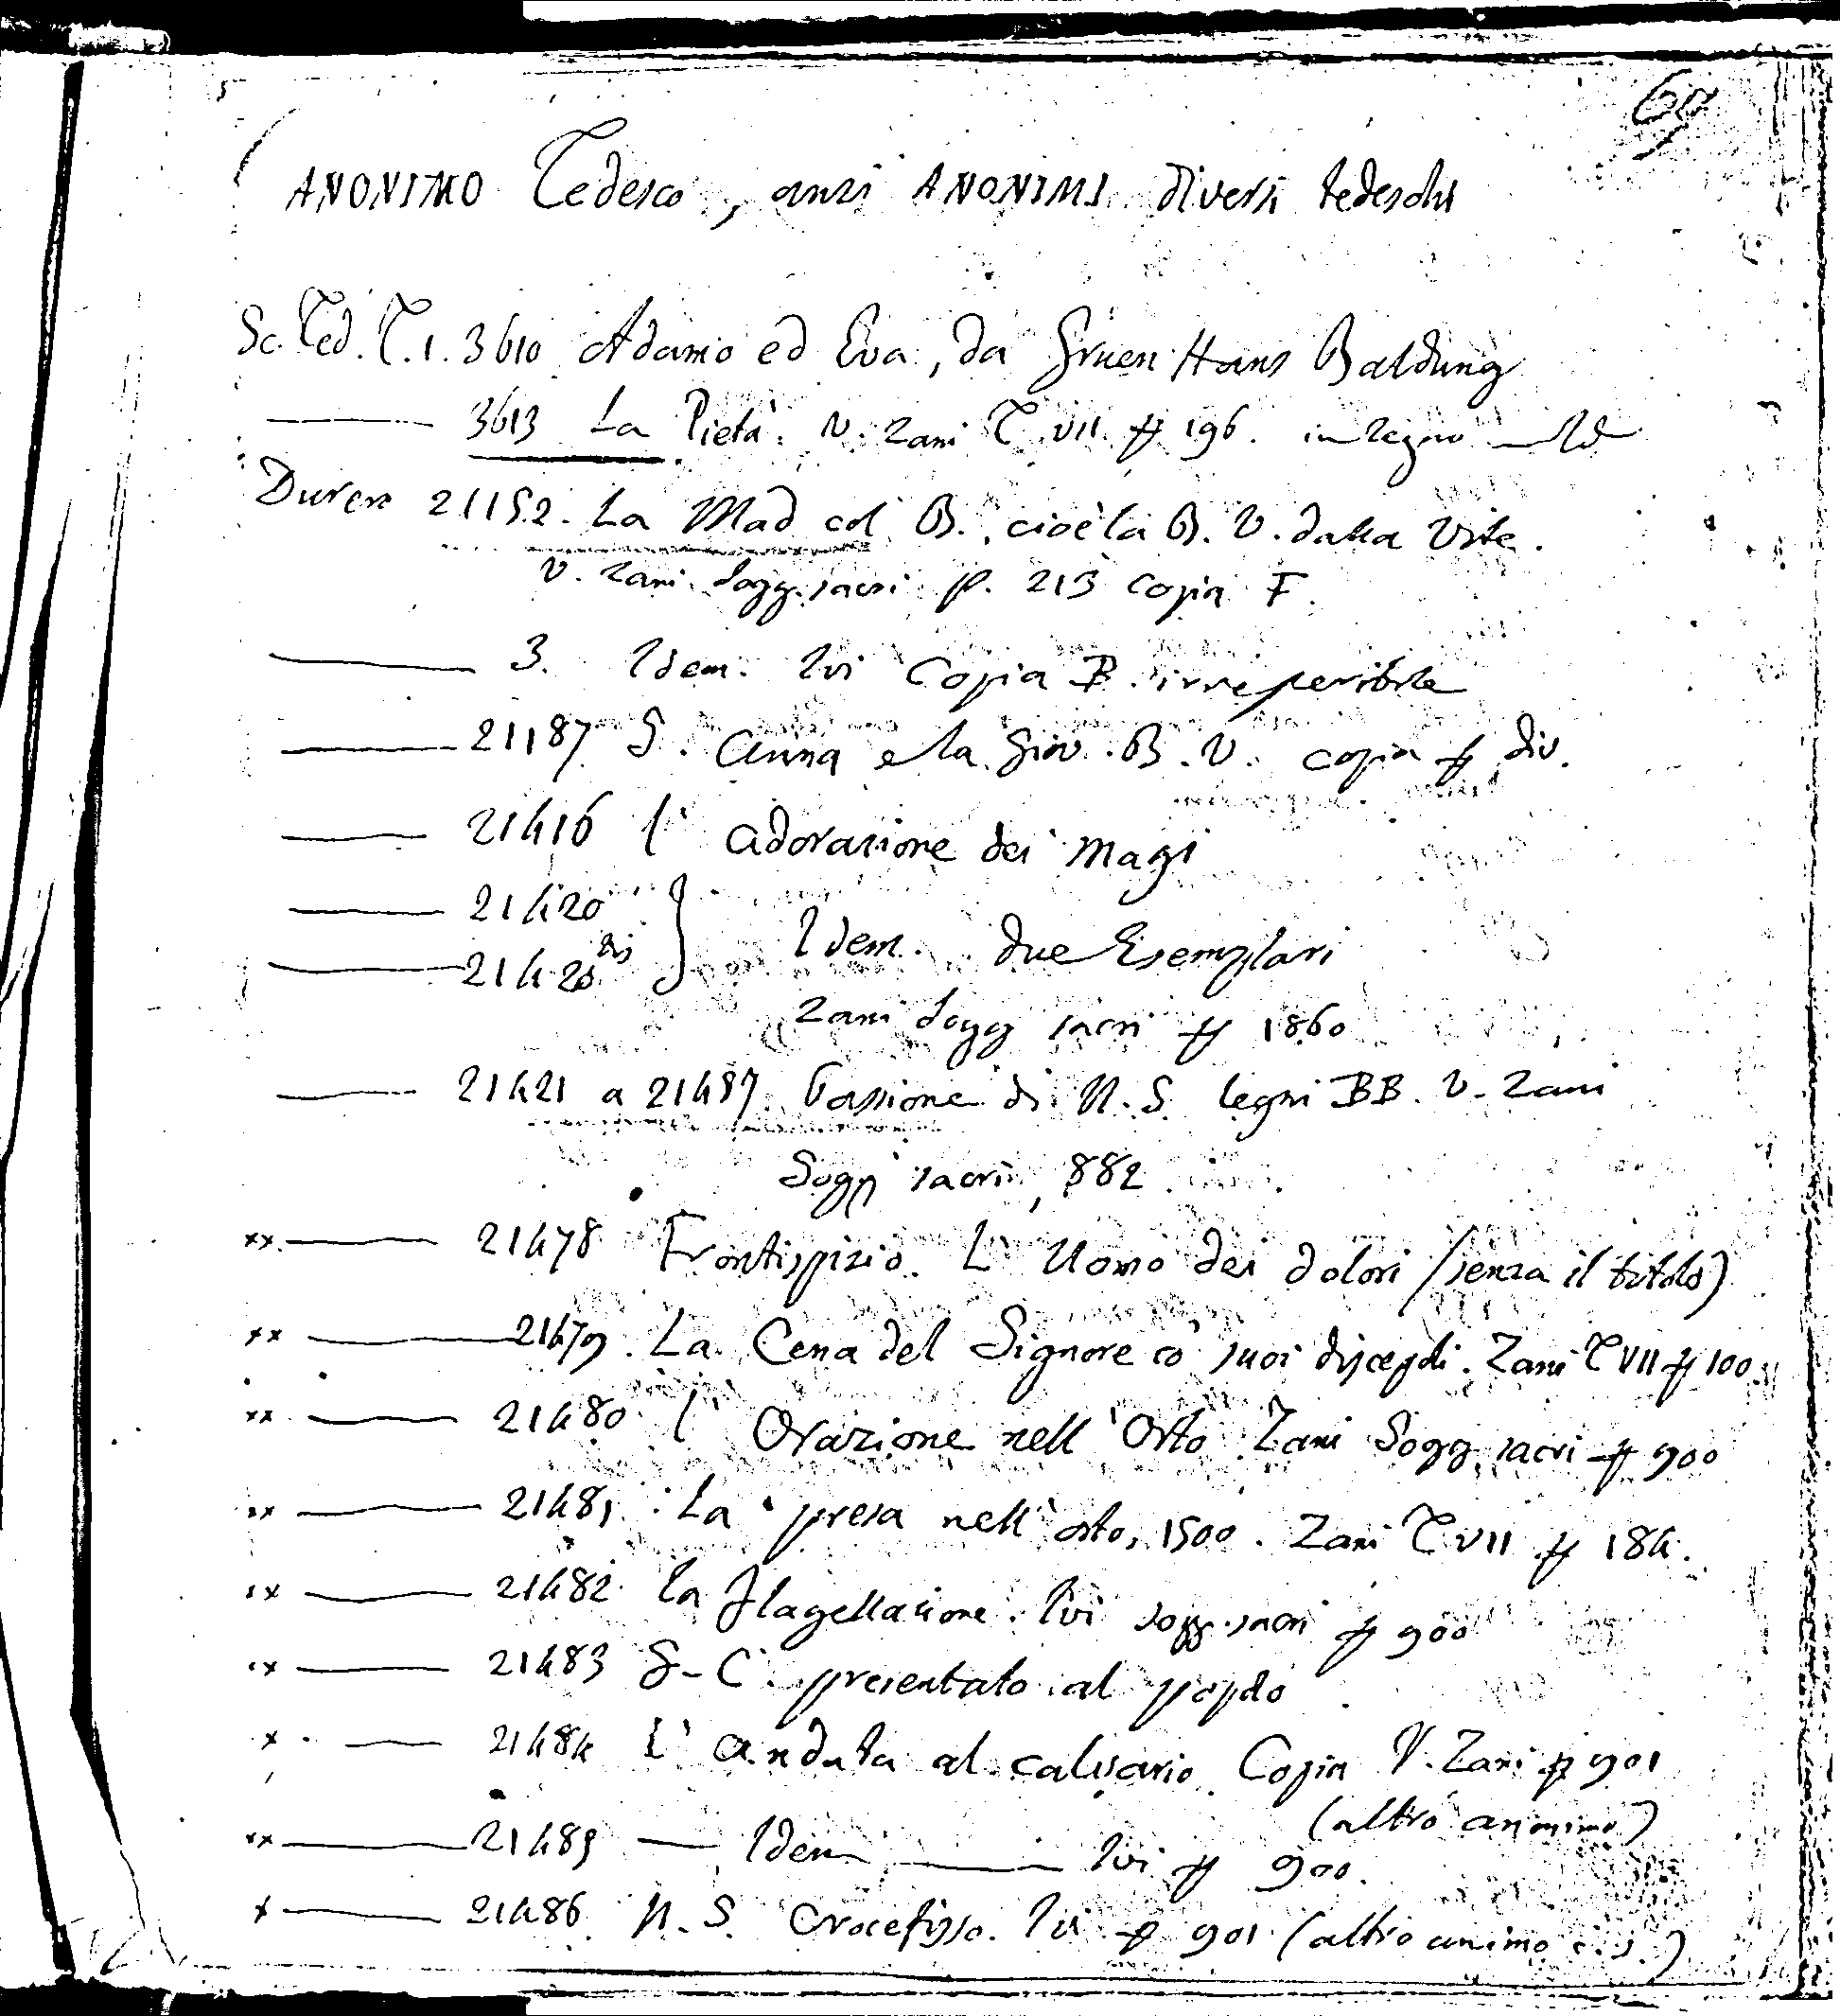 67
ANONIMO Tedesco, anzi ANONIMI diversi tedeschi
Sc. Ted. T. 1. 3610 Adamo ed Eva, da Gruen Hans Baldung
3613 La Pietà. V. Zani T. VII. p 196. in legno
Durero 21152. La Mad col B., cioè la B. V. dalla Vite.
V. Zani. Sogg. sacri p. 213 copia F.
3. Idem. Ivi Copia B. irreperibile
21187 S. Anna e la Giov. B. V. copia p div.
21416 L' adorazione dei Magi
21420
21420 bis } Idem. due Esemplari
Zani Sogg sacri p 1860
21421 a 21487 Passione di N. S. legni BB. V. Zani
Sogg sacri, 882
xx. 21478 Frontispizio. L' Uomo dei dolori (senza il titolo)
xx 21479. La Cena del Signore co' suoi discepoli. Zani T VII p 100.
xx 21480 L' Orazione nell' Orto Zani Sogg. sacri p 900
xx 21481. La presa nell' orto, 1500. Zani T. VII p 184.
xx 21482 La flagellazione. Ivi sogg. sacri p 900
xx 21483 G-C. presentato al popolo
x 21484 L' andata al calvario Copia V. Zani p 901
(altro anonimo)
xx 21485 — Idem — Ivi p 900.
x 21486 N. S. Crocefisso. Ivi p 901 (altro anonimo c. s.)